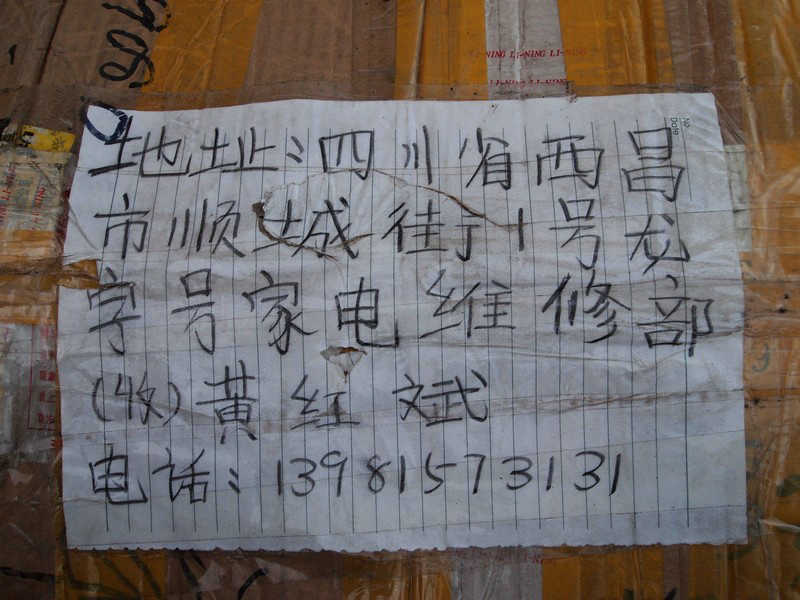 906
-NING LI-NING LI-NING
LI-NING LI-NING
No
Date
地址:四川省西昌
市顺城街1号龙
字号家电维修部
(收)黄红斌
电话:13981573131